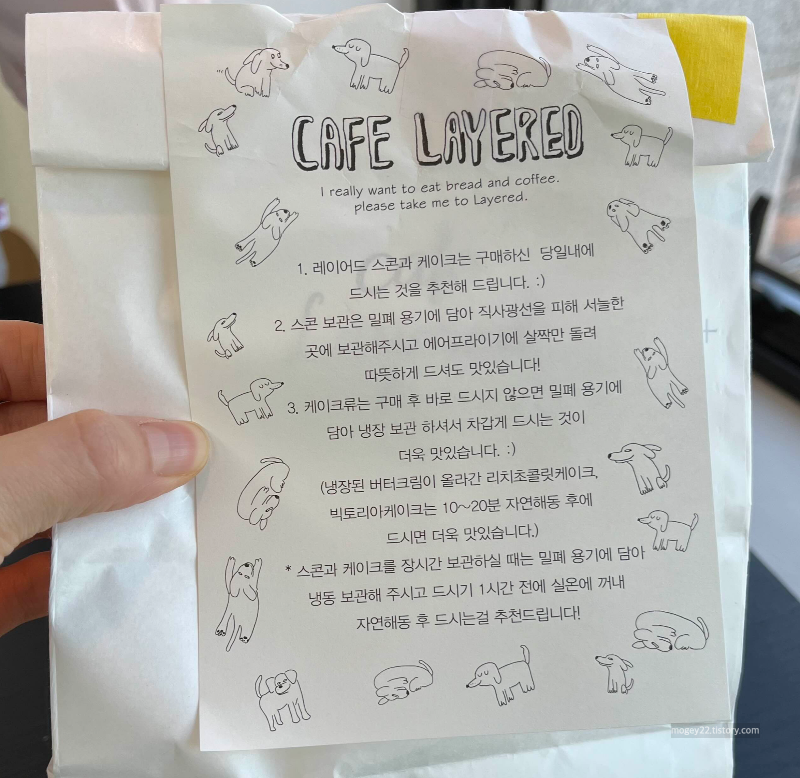 CAFE LAYERED
I really want to eat bread and coffee.
please take me to Layered.
1. 레이어드 스콘과 케이크는 구매하신 당일내에
드시는 것을 추천해 드립니다. :)
2. 스콘 보관은 밀폐 용기에 담아 직사광선을 피해 서늘한
곳에 보관해주시고 에어프라이기에 살짝만 돌려
따뜻하게 드셔도 맛있습니다!
3. 케이크류는 구매 후 바로 드시지 않으면 밀폐 용기에
담아 냉장 보관 하셔서 차갑게 드시는 것이
더욱 맛있습니다. :)
(냉장된 버터크림이 올라간 리치초콜릿케이크,
빅토리아케이크는 10~20분 자연해동 후에
드시면 더욱 맛있습니다.)
* 스콘과 케이크를 장시간 보관하실 때는 밀폐 용기에 담아
냉동 보관해 주시고 드시기 1시간 전에 실온에 꺼내
자연해동 후 드시는걸 추천드립니다!
mogey22.tistory.com